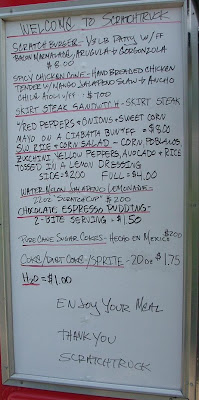 WELCOME TO SCRATCHTRUCK
SCRATCH BURGER - 1/3LB PATTY W/ FF
BACON MARMALADE, ARUGULA & GORGONZOLA
$8.00
SPICY CHICKEN CONE - HAND BREADED CHICKEN
TENDER W/ MANGO JALAPENO SLAW & ANCHO
CHILE AIOLI - $7.00
SKIRT STEAK SANDWICH - SKIRT STEAK
W/ RED PEPPERS & ONIONS & SWEET CORN
MAYO ON A CIABATTA BUN W/FF = $8.00
RICE & CORN SALAD - CORN, POBLANOS
ZUCCHINI, YELLOW PEPPERS, AVOCADO & RICE
TOSSED IN A LEMON DRESSING
SIDE: $2.00 FULL = $4.00
WATER MELON JALAPENO LEMONADE -
22 OZ. "SCRATCH CUP" $2.00
CHOCOLATE ESPRESSO PUDDING -
2-BITE SERVING = $1.50
PURE CANE SUGAR COKES - HECHO EN MEXICO
$2.00
COKE/DIET COKE/SPRITE - 20 OZ $1.75
H2O = $1.00
ENJOY YOUR MEAL
THANK YOU
SCRATCHTRUCK